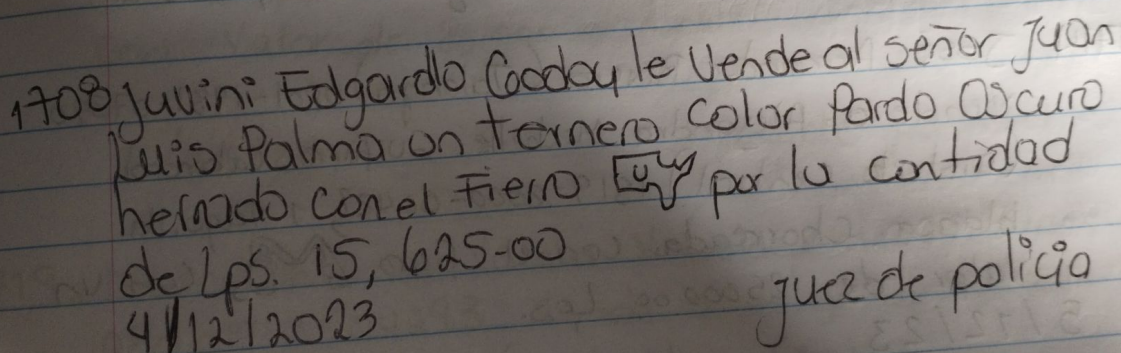 1708 Juvini Edgardo Gooday le vende al señor Juan
Luis Palma un ternero color Pardo Oscuro
herrado con el Fierro por la cantidad
de Lps. 15,625-00
juez de policia
4/12/2023